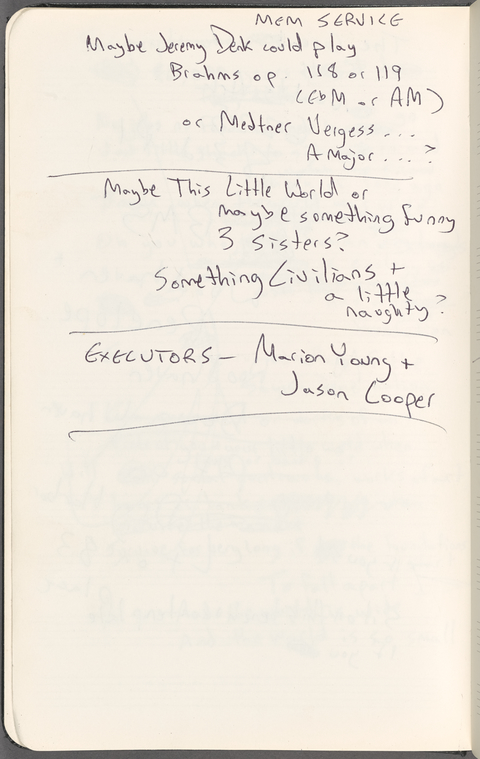 MEM SERVICE
Maybe Jeremy Denk could play
Brahms op. 118 or 119
(EbM or AM)
or Medtner Vergess...
A Major...?
Maybe This Little World or
maybe something funny
3 sisters?
Something Civilians +
a little
naughty?
EXECUTORS - Marion Young +
Jason Cooper